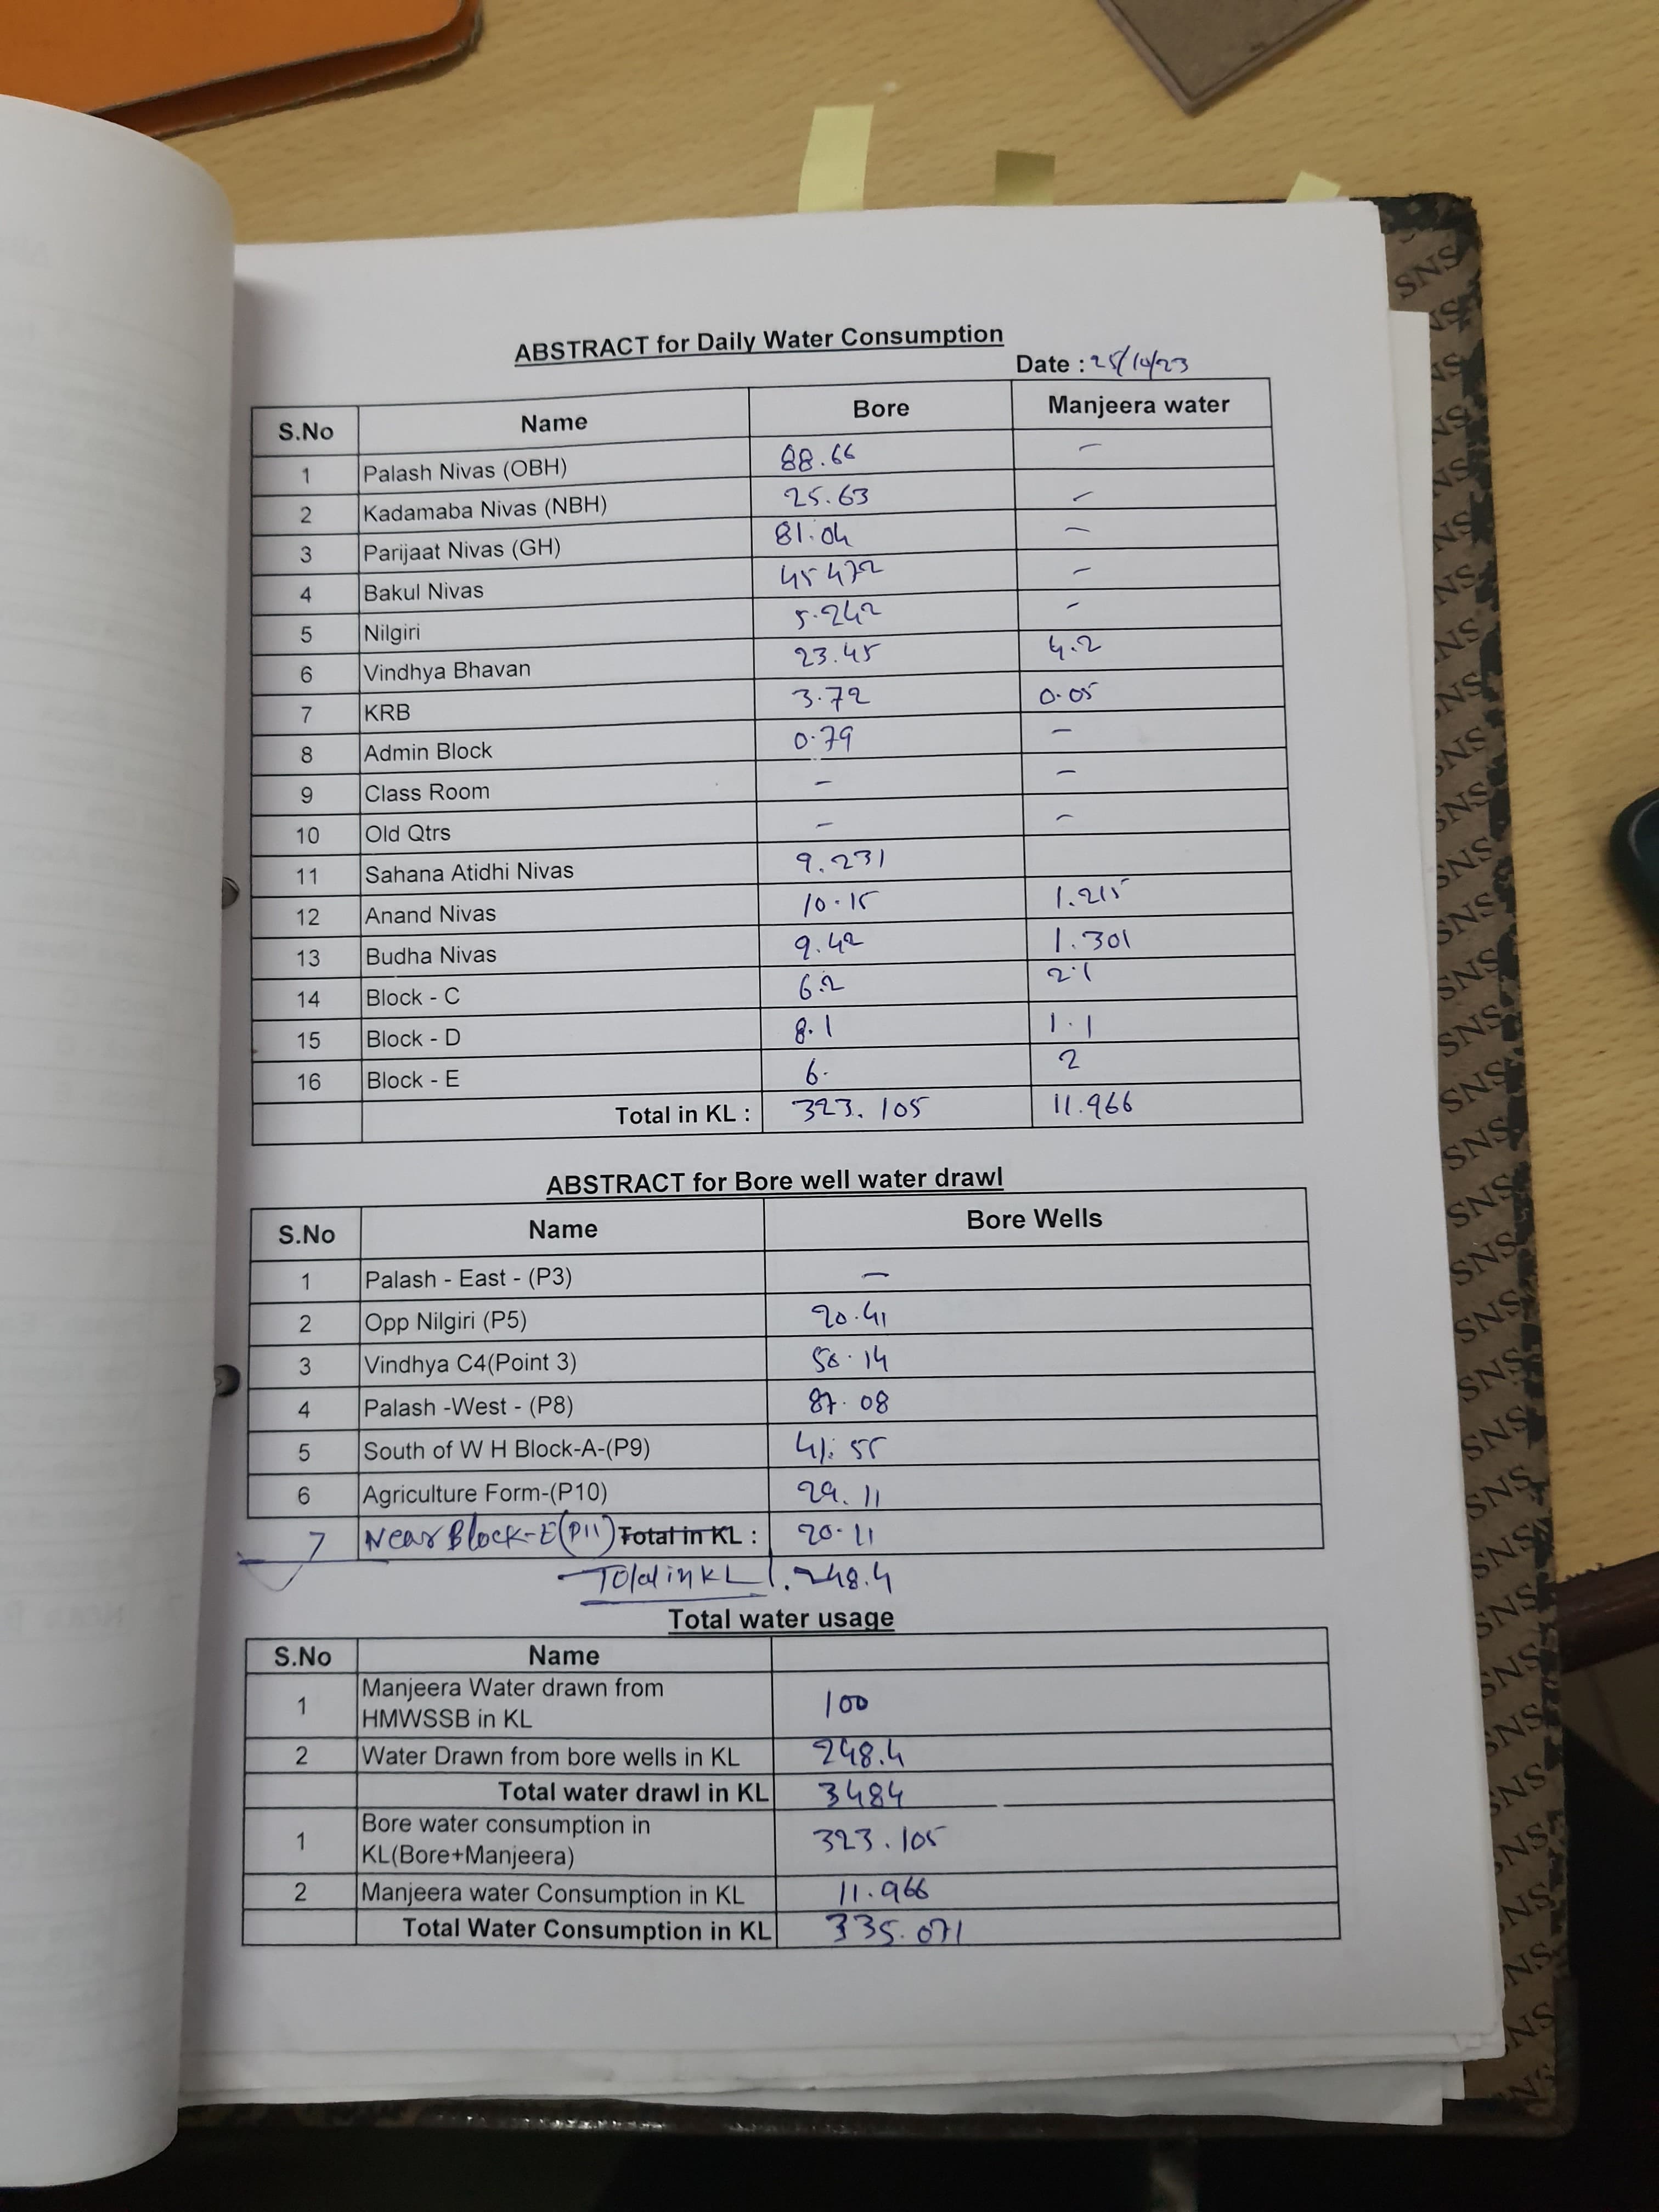 ABSTRACT for Daily Water Consumption
Date : 25/10/23
S.No Name Bore Manjeera water
1 Palash Nivas (OBH) 88.66 -
2 Kadamaba Nivas (NBH) 25.63 -
3 Parijaat Nivas (GH) 81.04 -
4 Bakul Nivas 45 472 -
5 Nilgiri 5.242 -
6 Vindhya Bhavan 23.45 4.2
7 KRB 3.72 0.05
8 Admin Block 0.79 -
9 Class Room - -
10 Old Qtrs - -
11 Sahana Atidhi Nivas 9.231
12 Anand Nivas 10.15 1.215
13 Budha Nivas 9.42 1.301
14 Block - C 6.2 2.1
15 Block - D 8.1 1.1
16 Block - E 6. 2
Total in KL : 323.105 11.966
ABSTRACT for Bore well water drawl
S.No Name Bore Wells
1 Palash - East - (P3) -
2 Opp Nilgiri (P5) 20.41
3 Vindhya C4(Point 3) 50.14
4 Palash -West - (P8) 87.08
5 South of W H Block-A-(P9) 41.55
6 Agriculture Form-(P10) 29.11
7 Near Block-E(P11) Total in KL : 20.11
Total in KL 248.4
Total water usage
S.No Name
1 Manjeera Water drawn from
HMWSSB in KL 100
2 Water Drawn from bore wells in KL 248.4
Total water drawl in KL 3484
1 Bore water consumption in
KL(Bore+Manjeera) 323.105
2 Manjeera water Consumption in KL 11.966
Total Water Consumption in KL 335.071
SNS